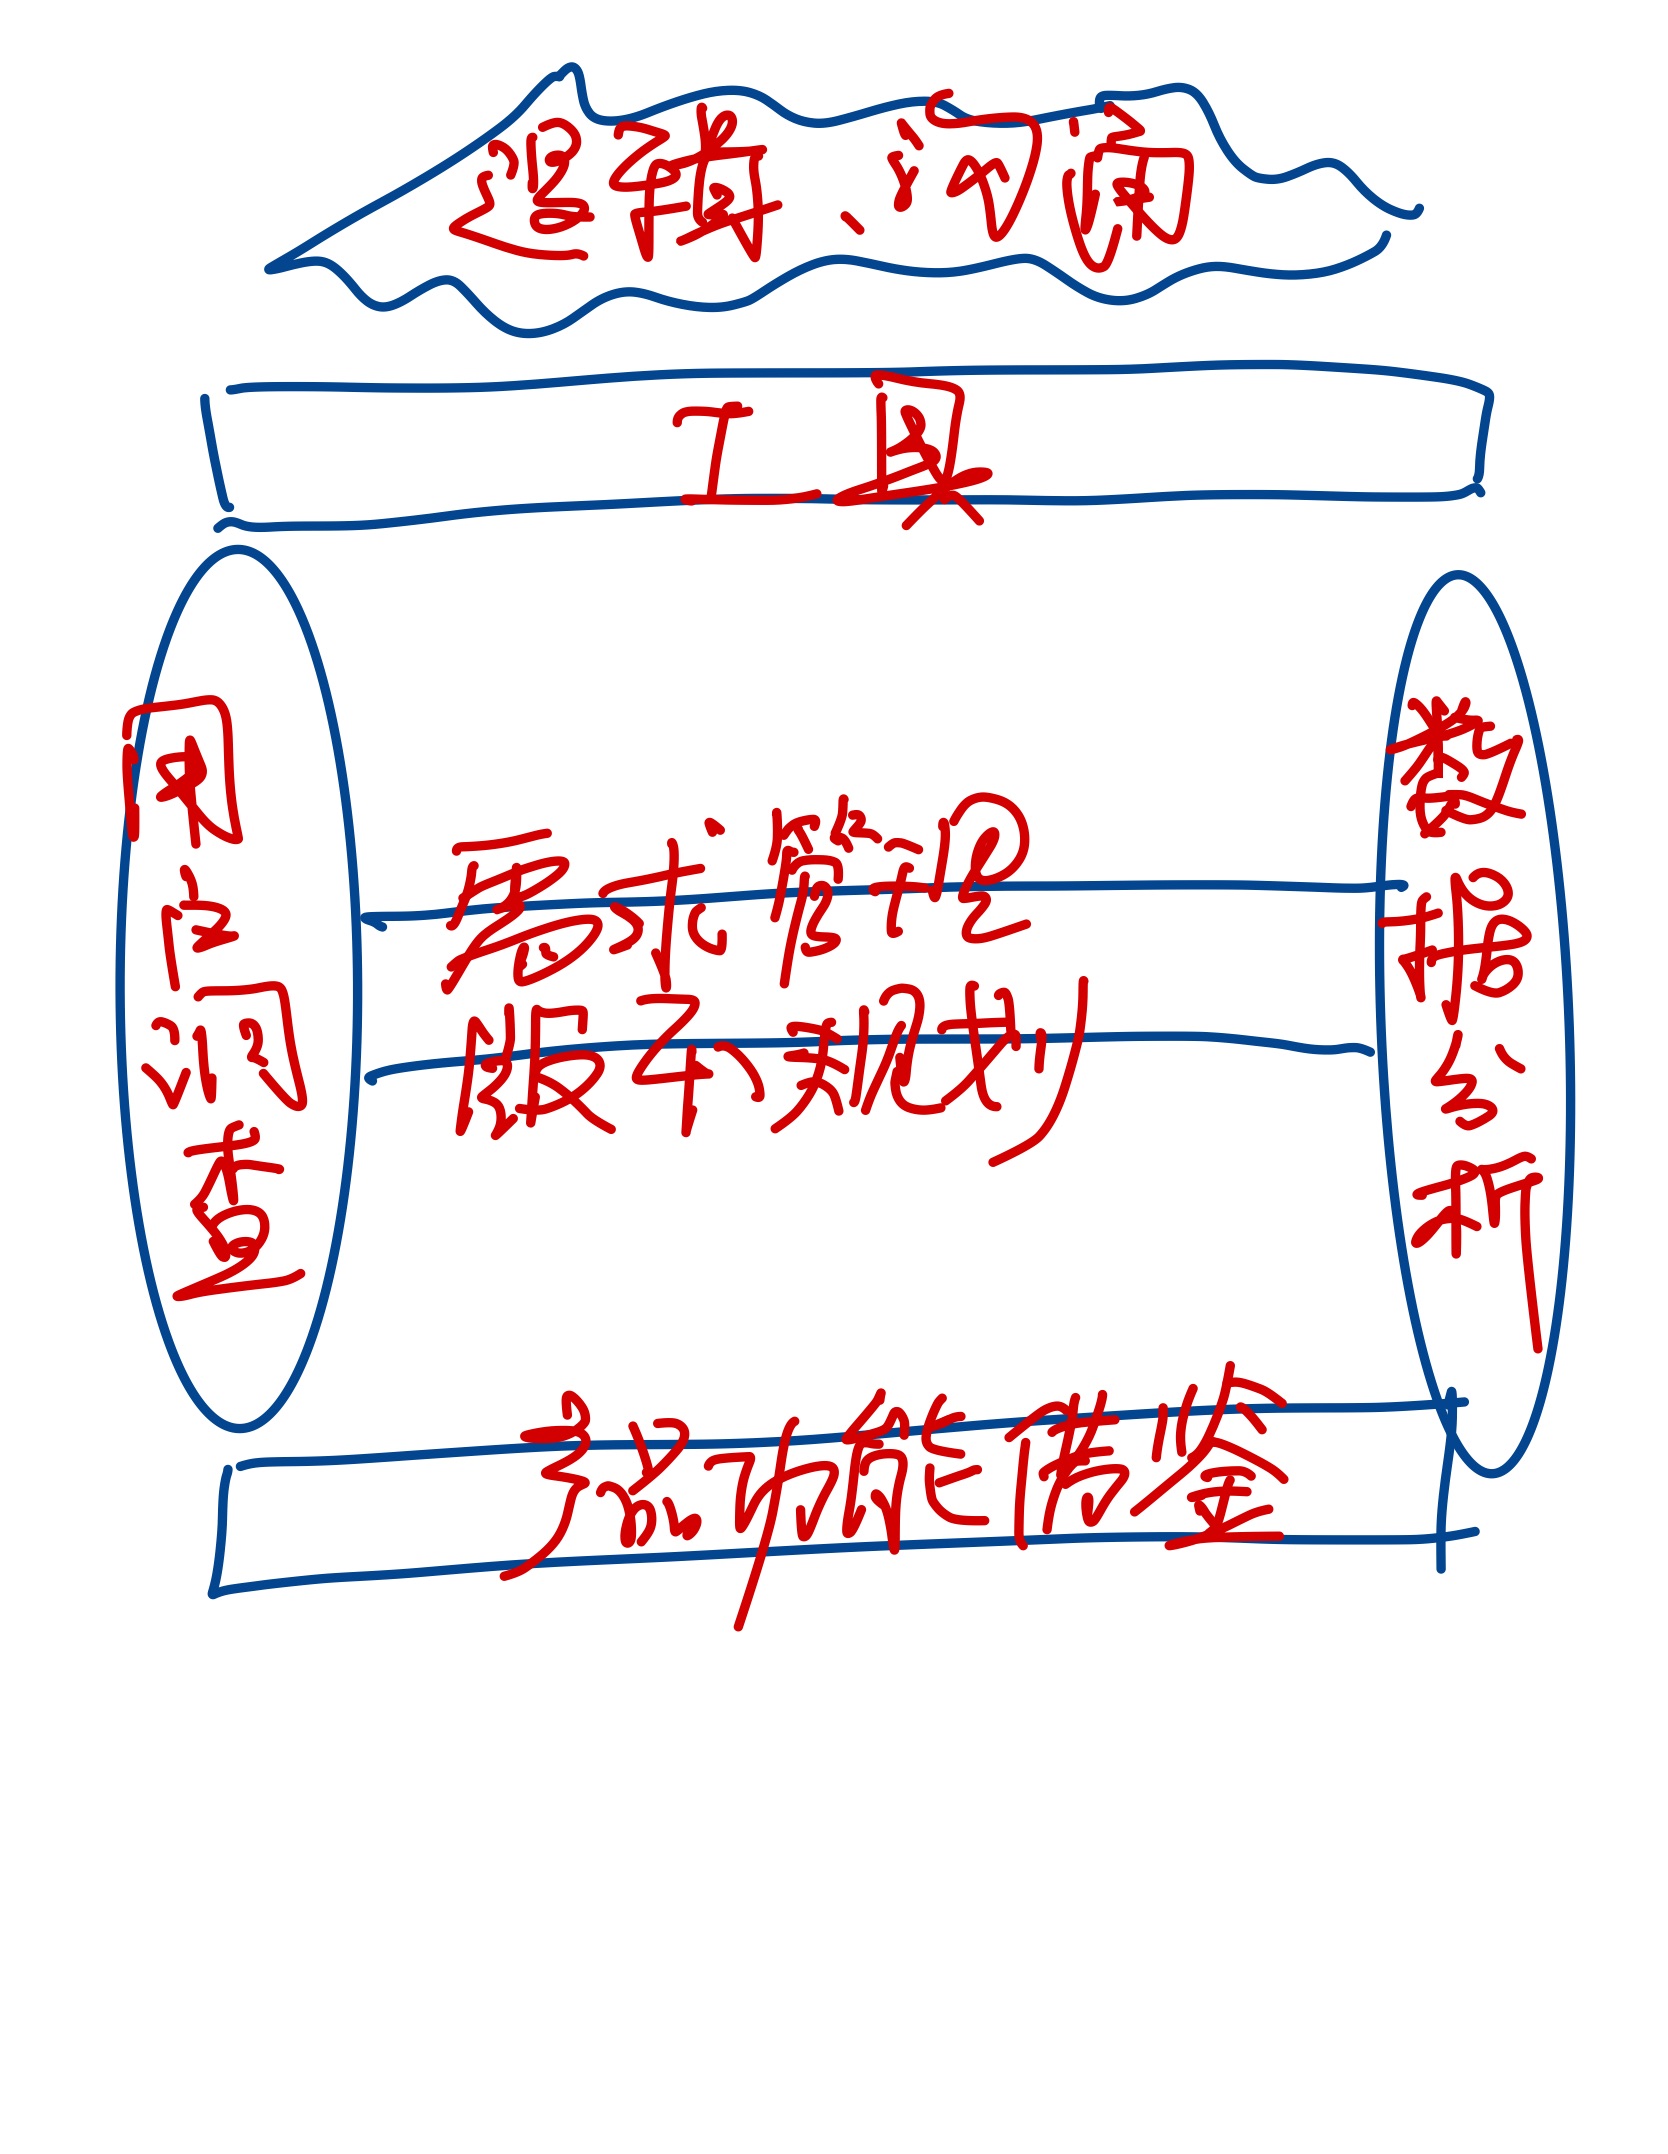 逻辑、沟通
工具
用户调查
需求管理
版本规划
数据分析
竞品功能借鉴